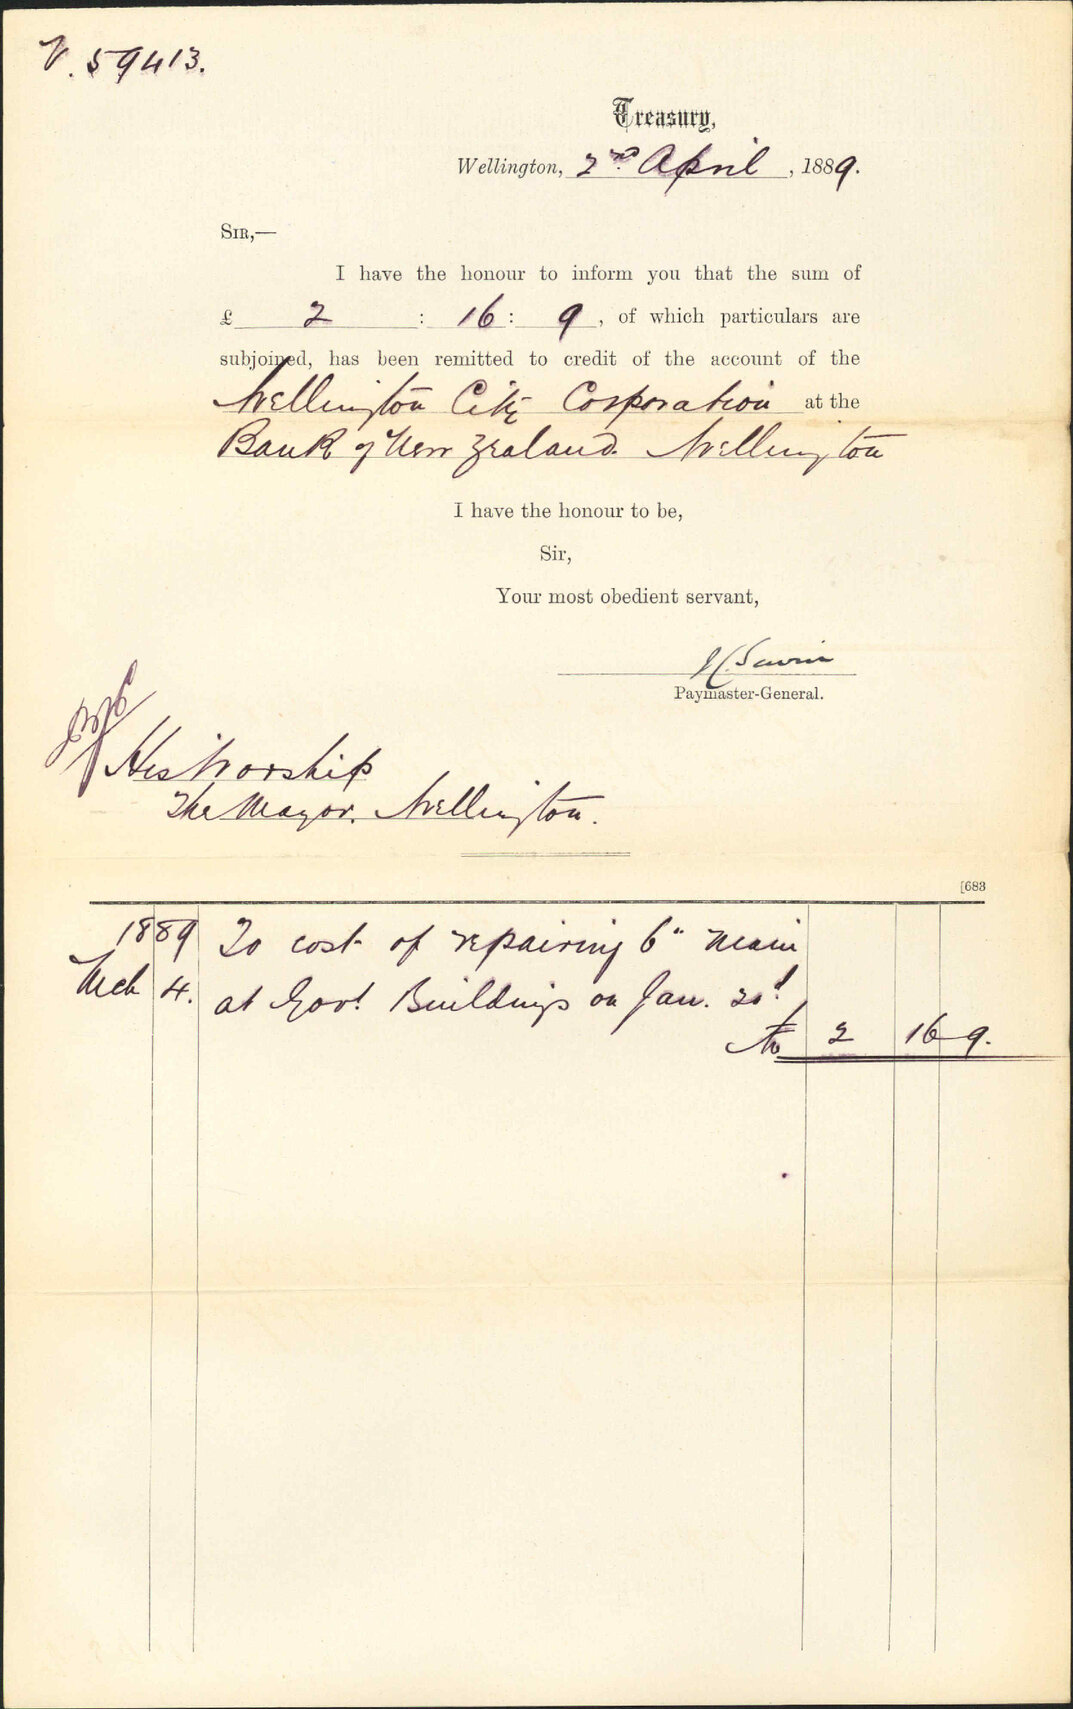 V. 59413.
Treasury,
Wellington, 2nd April, 1889.
SIR,—
I have the honour to inform you that the sum of
£ 2 : 16 : 9, of which particulars are
subjoined, has been remitted to credit of the account of the
Wellington City Corporation at the
Bank of New Zealand Wellington
I have the honour to be,
Sir,
Your most obedient servant,
Paymaster-General.
His Worship
The Mayor, Wellington.
[683
1889 To cost of repairing 6" main
Mch 4. at Govt Buildings on Jan.
2 16 9.